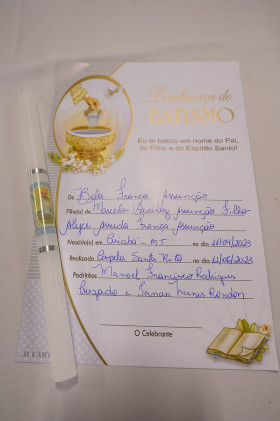 Lembrança do
BATISMO
Eu te batizo em nome do Pai,
do Filho e do Espírito Santo!
De Bella França Assunção
Filho(a) de Marcelo Assunção Filho
Arruda França Assunção
Nascido(a) em Cuiabá - MT no dia 11/04/2023
Realizado Capela Santa Rita no dia 11/06/2023
Padrinhos Manoel Francisco Rodrigues
e Nunes Rondon
O Celebrante